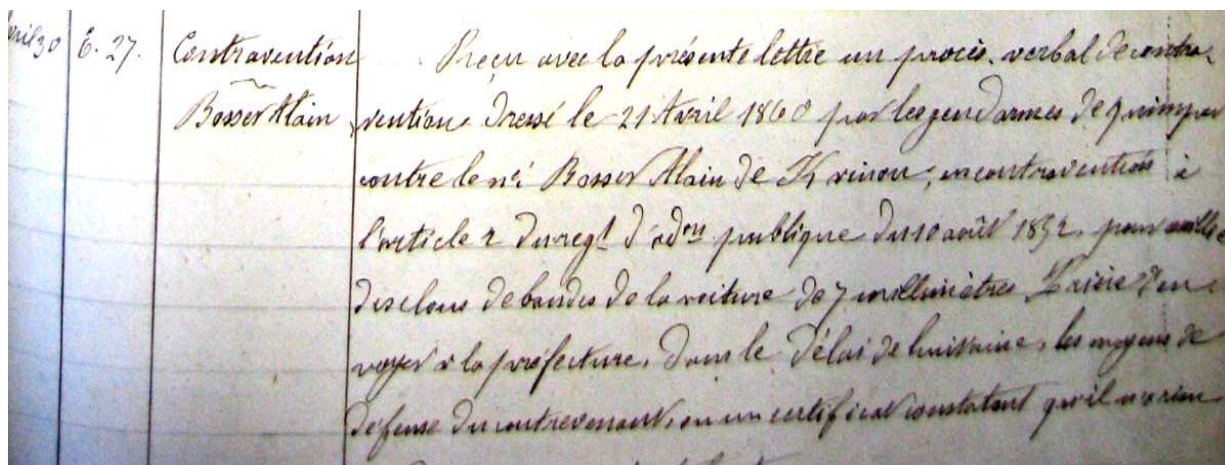 Avril 30 E. 27. Contravention Reçu avec la présente lettre un procès-verbal de contra-
Bosser Alain vention dressé le 21 Avril 1860 par les gendarmes de Quimper
contre le né Bosser Alain de Kvinou, en contravention à
l'article 2 du regt d'adon publique du 10 août 1852, pour
des clous de bandes de la voiture de 7 millimètres. Prière d'en-
voyer à la préfecture, dans le délai de huitaine, les moyens de
défense du contrevenant, ou un certificat constatant qu'il n'a rien